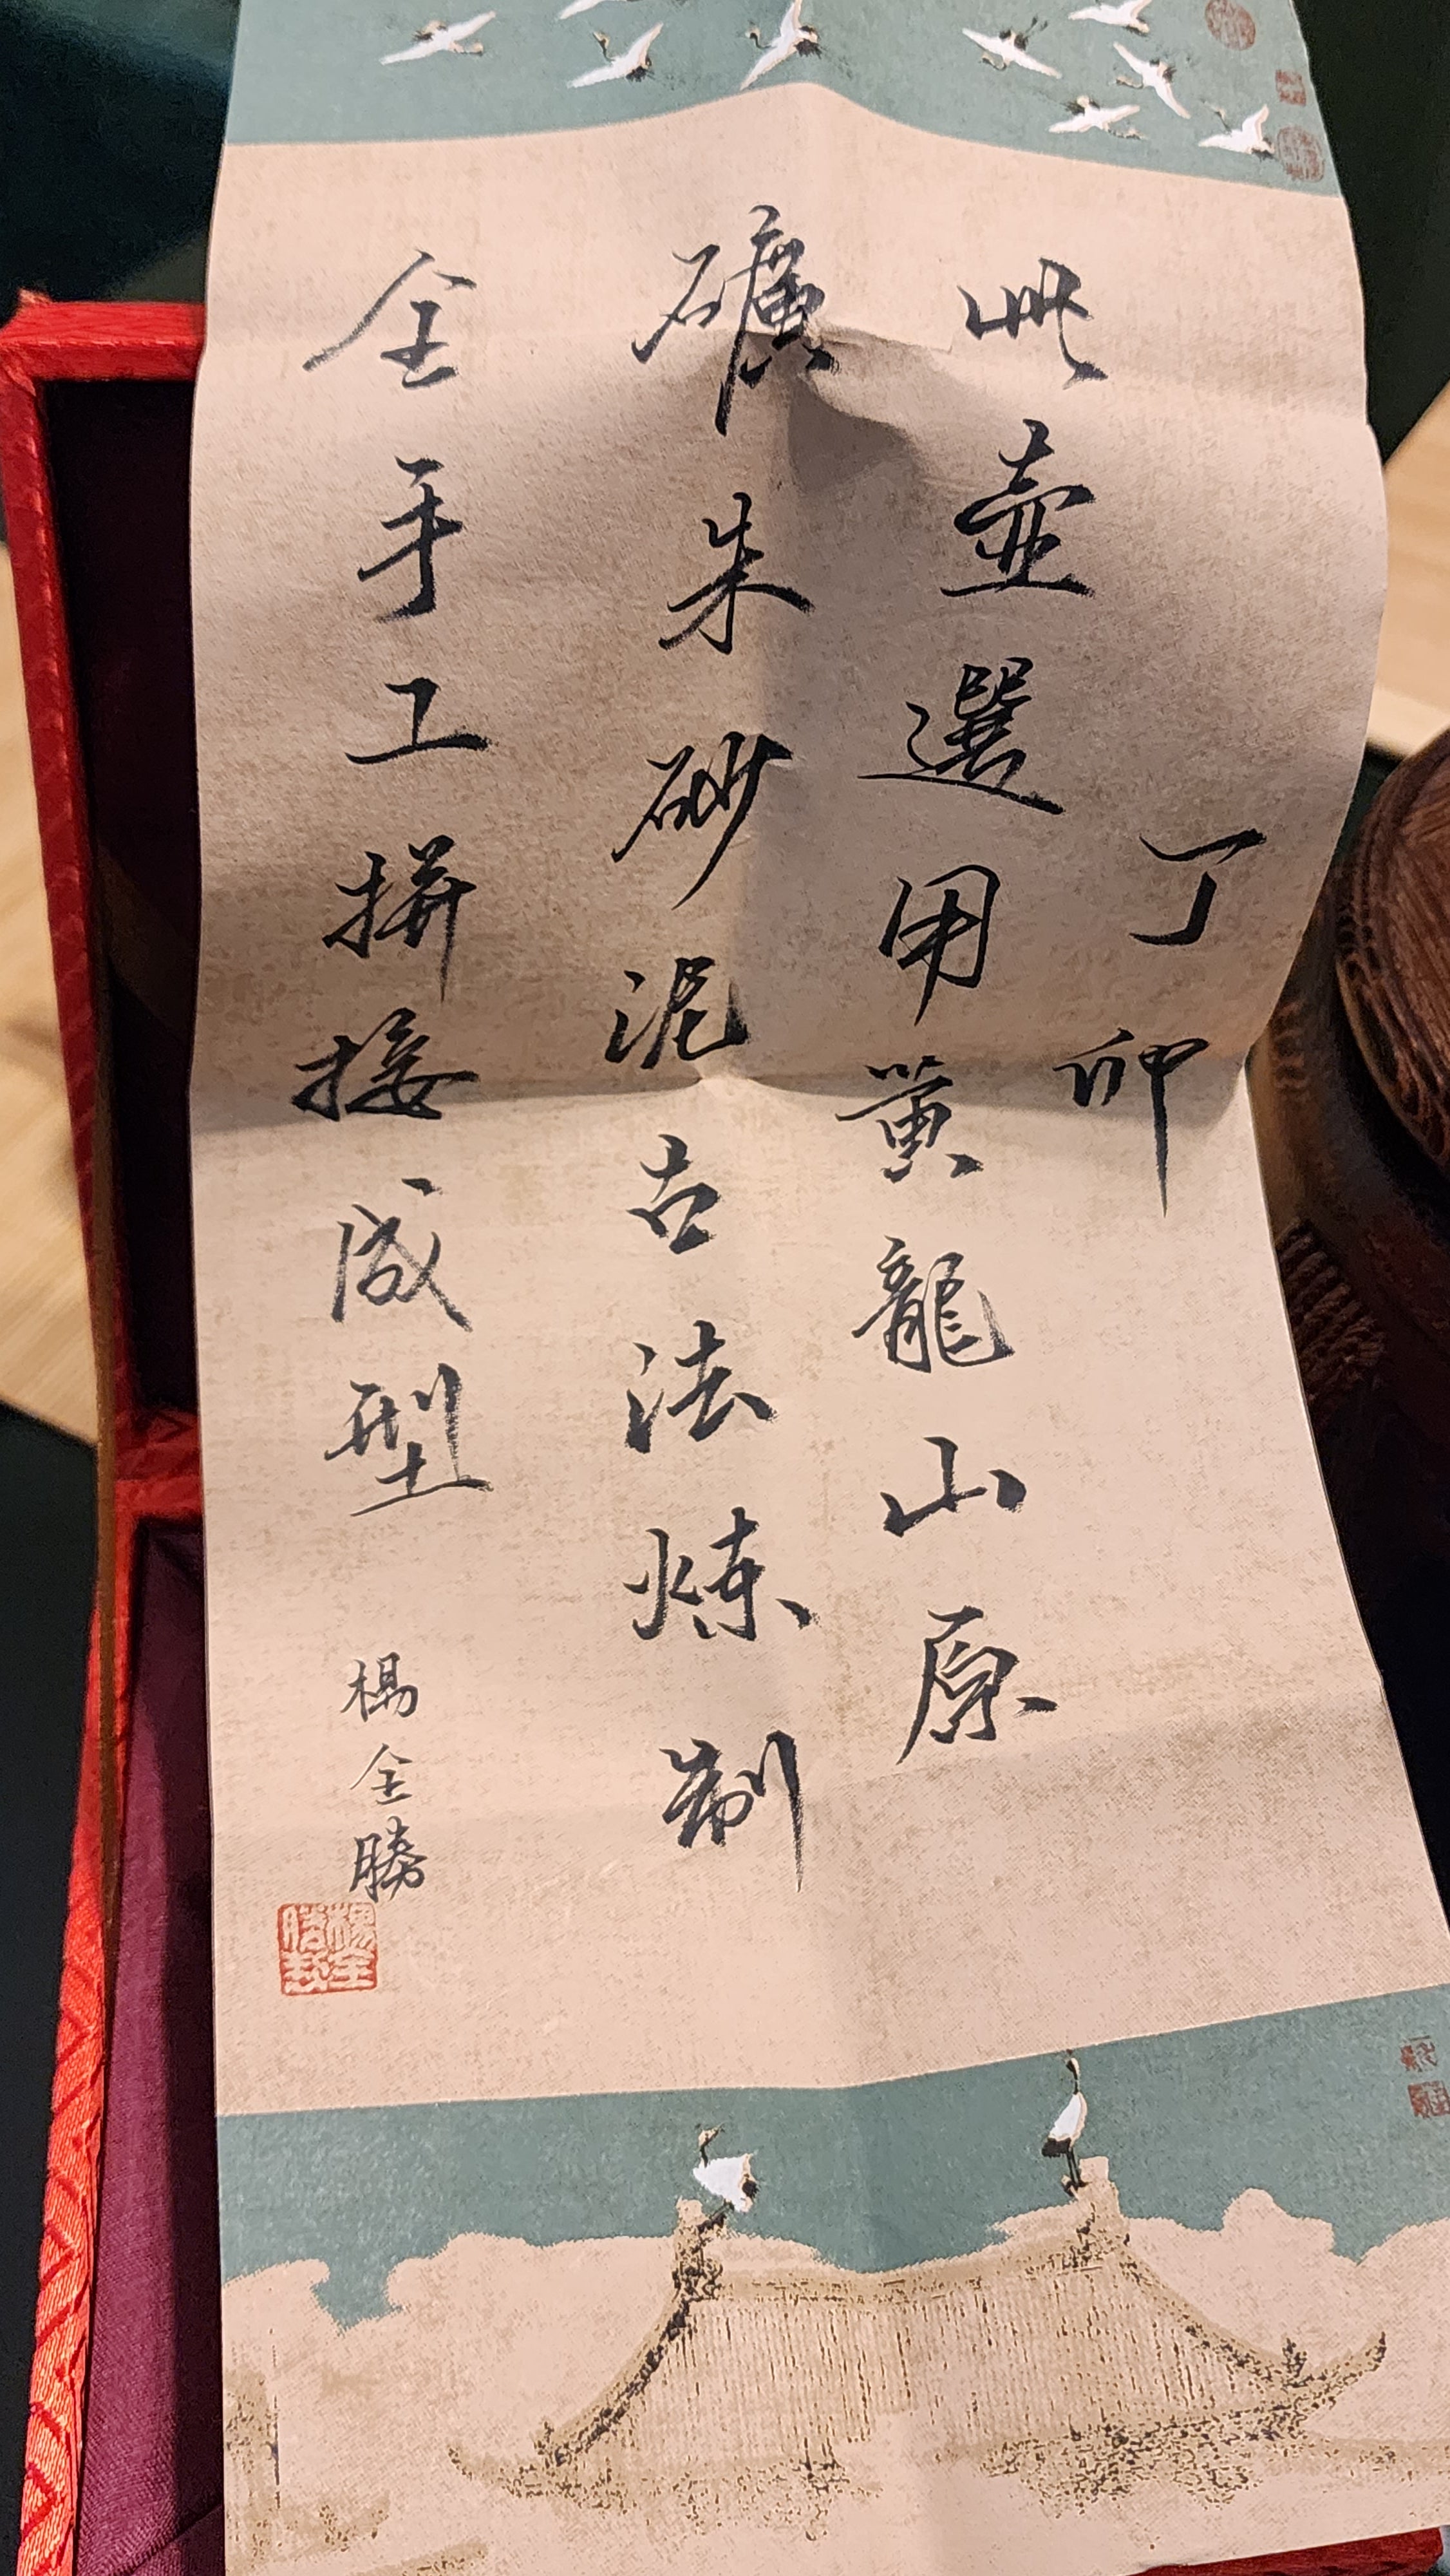 丁卯
此壺選用黄龍山原
礦朱砂泥古法煉制
全手工拼接成型
楊全勝